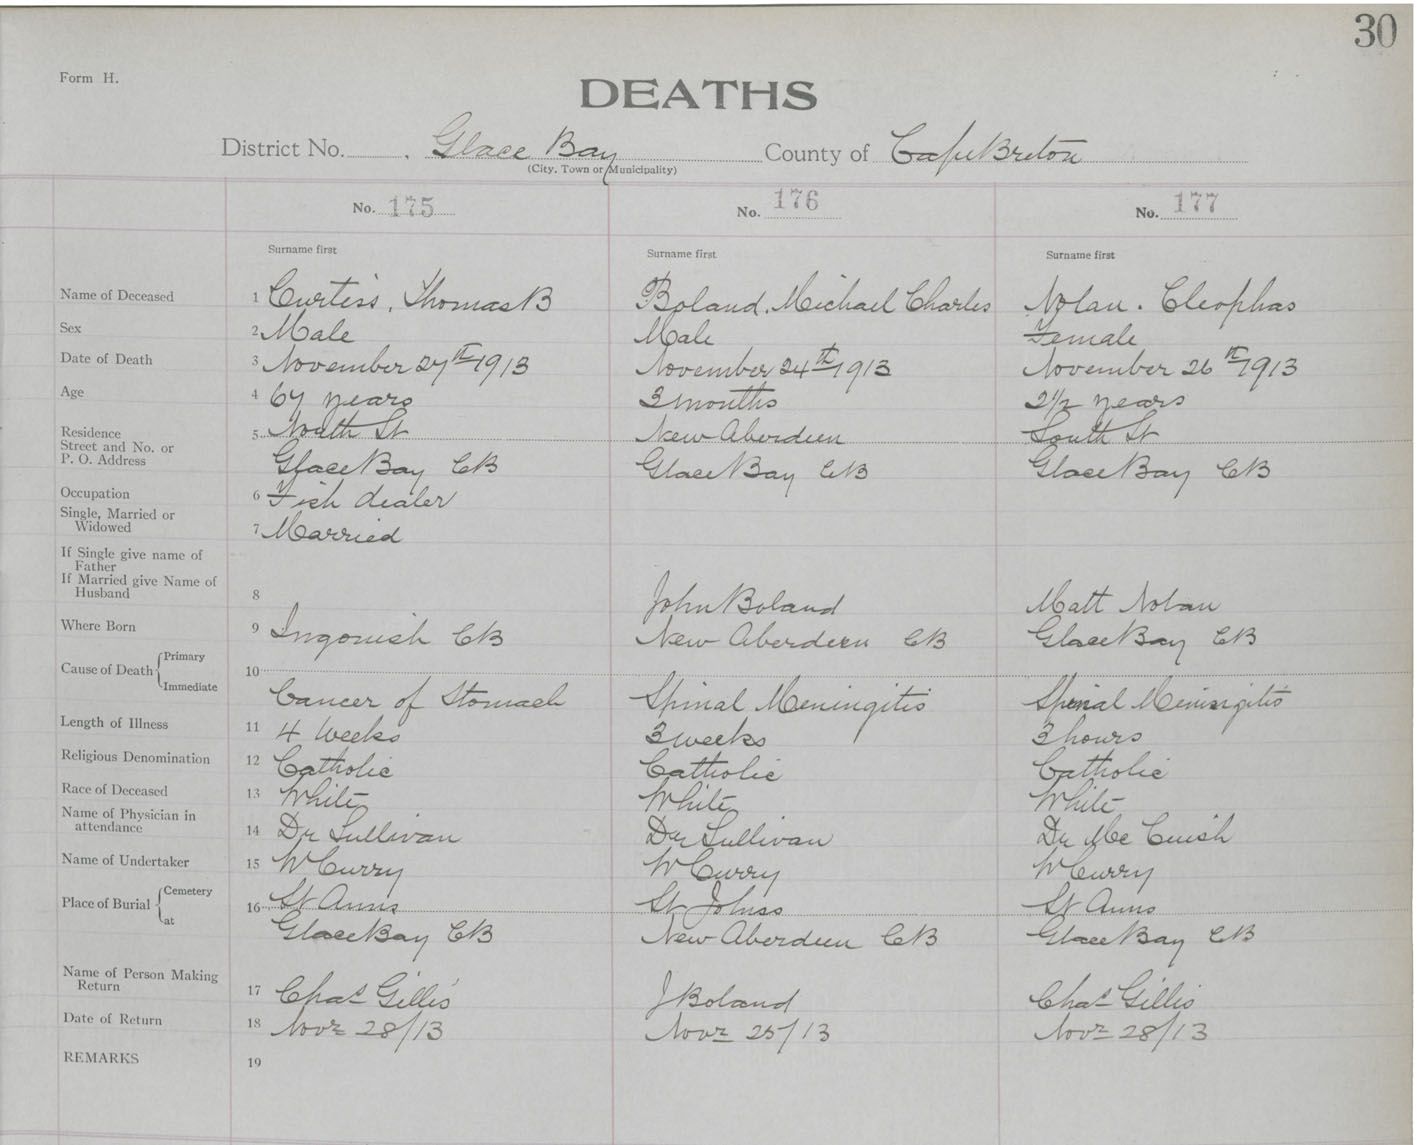 30
Form H.
DEATHS
District No. Glace Bay County of Cape Breton
(City, Town or Municipality)
No. 175 No. 176 No. 177
Surname first Surname first Surname first
Name of Deceased 1 Curtiss, Thomas B Boland, Michael Charles Nolan. Cleophas
Sex 2 Male Male Female
Date of Death 3 November 27th 1913 November 24th 1913 November 26th 1913
Age 4 67 years 3 months 2 1/2 years
Residence 5 North St New Aberdeen South St
Street and No. or
P. O. Address Glace Bay CB Glace Bay CB Glace Bay CB
Occupation 6 Fish dealer
Single, Married or
Widowed 7 Married
If Single give name of
Father
If Married give Name of
Husband 8 John Boland Matt Nolan
Where Born 9 Ingonish CB New Aberdeen CB Glace Bay CB
Cause of Death Primary 10
Immediate Cancer of Stomach Spinal Meningitis Spinal Meningitis
Length of Illness 11 4 weeks 3 weeks 3 hours
Religious Denomination 12 Catholic Catholic Catholic
Race of Deceased 13 White White White
Name of Physician in
attendance 14 Dr Sullivan Dr Sullivan Dr Mc Cuish
Name of Undertaker 15 W Curry W Curry W Curry
Place of Burial Cemetery 16 St Anns St Johns St Anns
at Glace Bay CB New Aberdeen CB Glace Bay CB
Name of Person Making
Return 17 Chas Gillis J Boland Chas Gillis
Date of Return 18 Novr 28/13 Novr 25/13 Novr 28/13
REMARKS 19